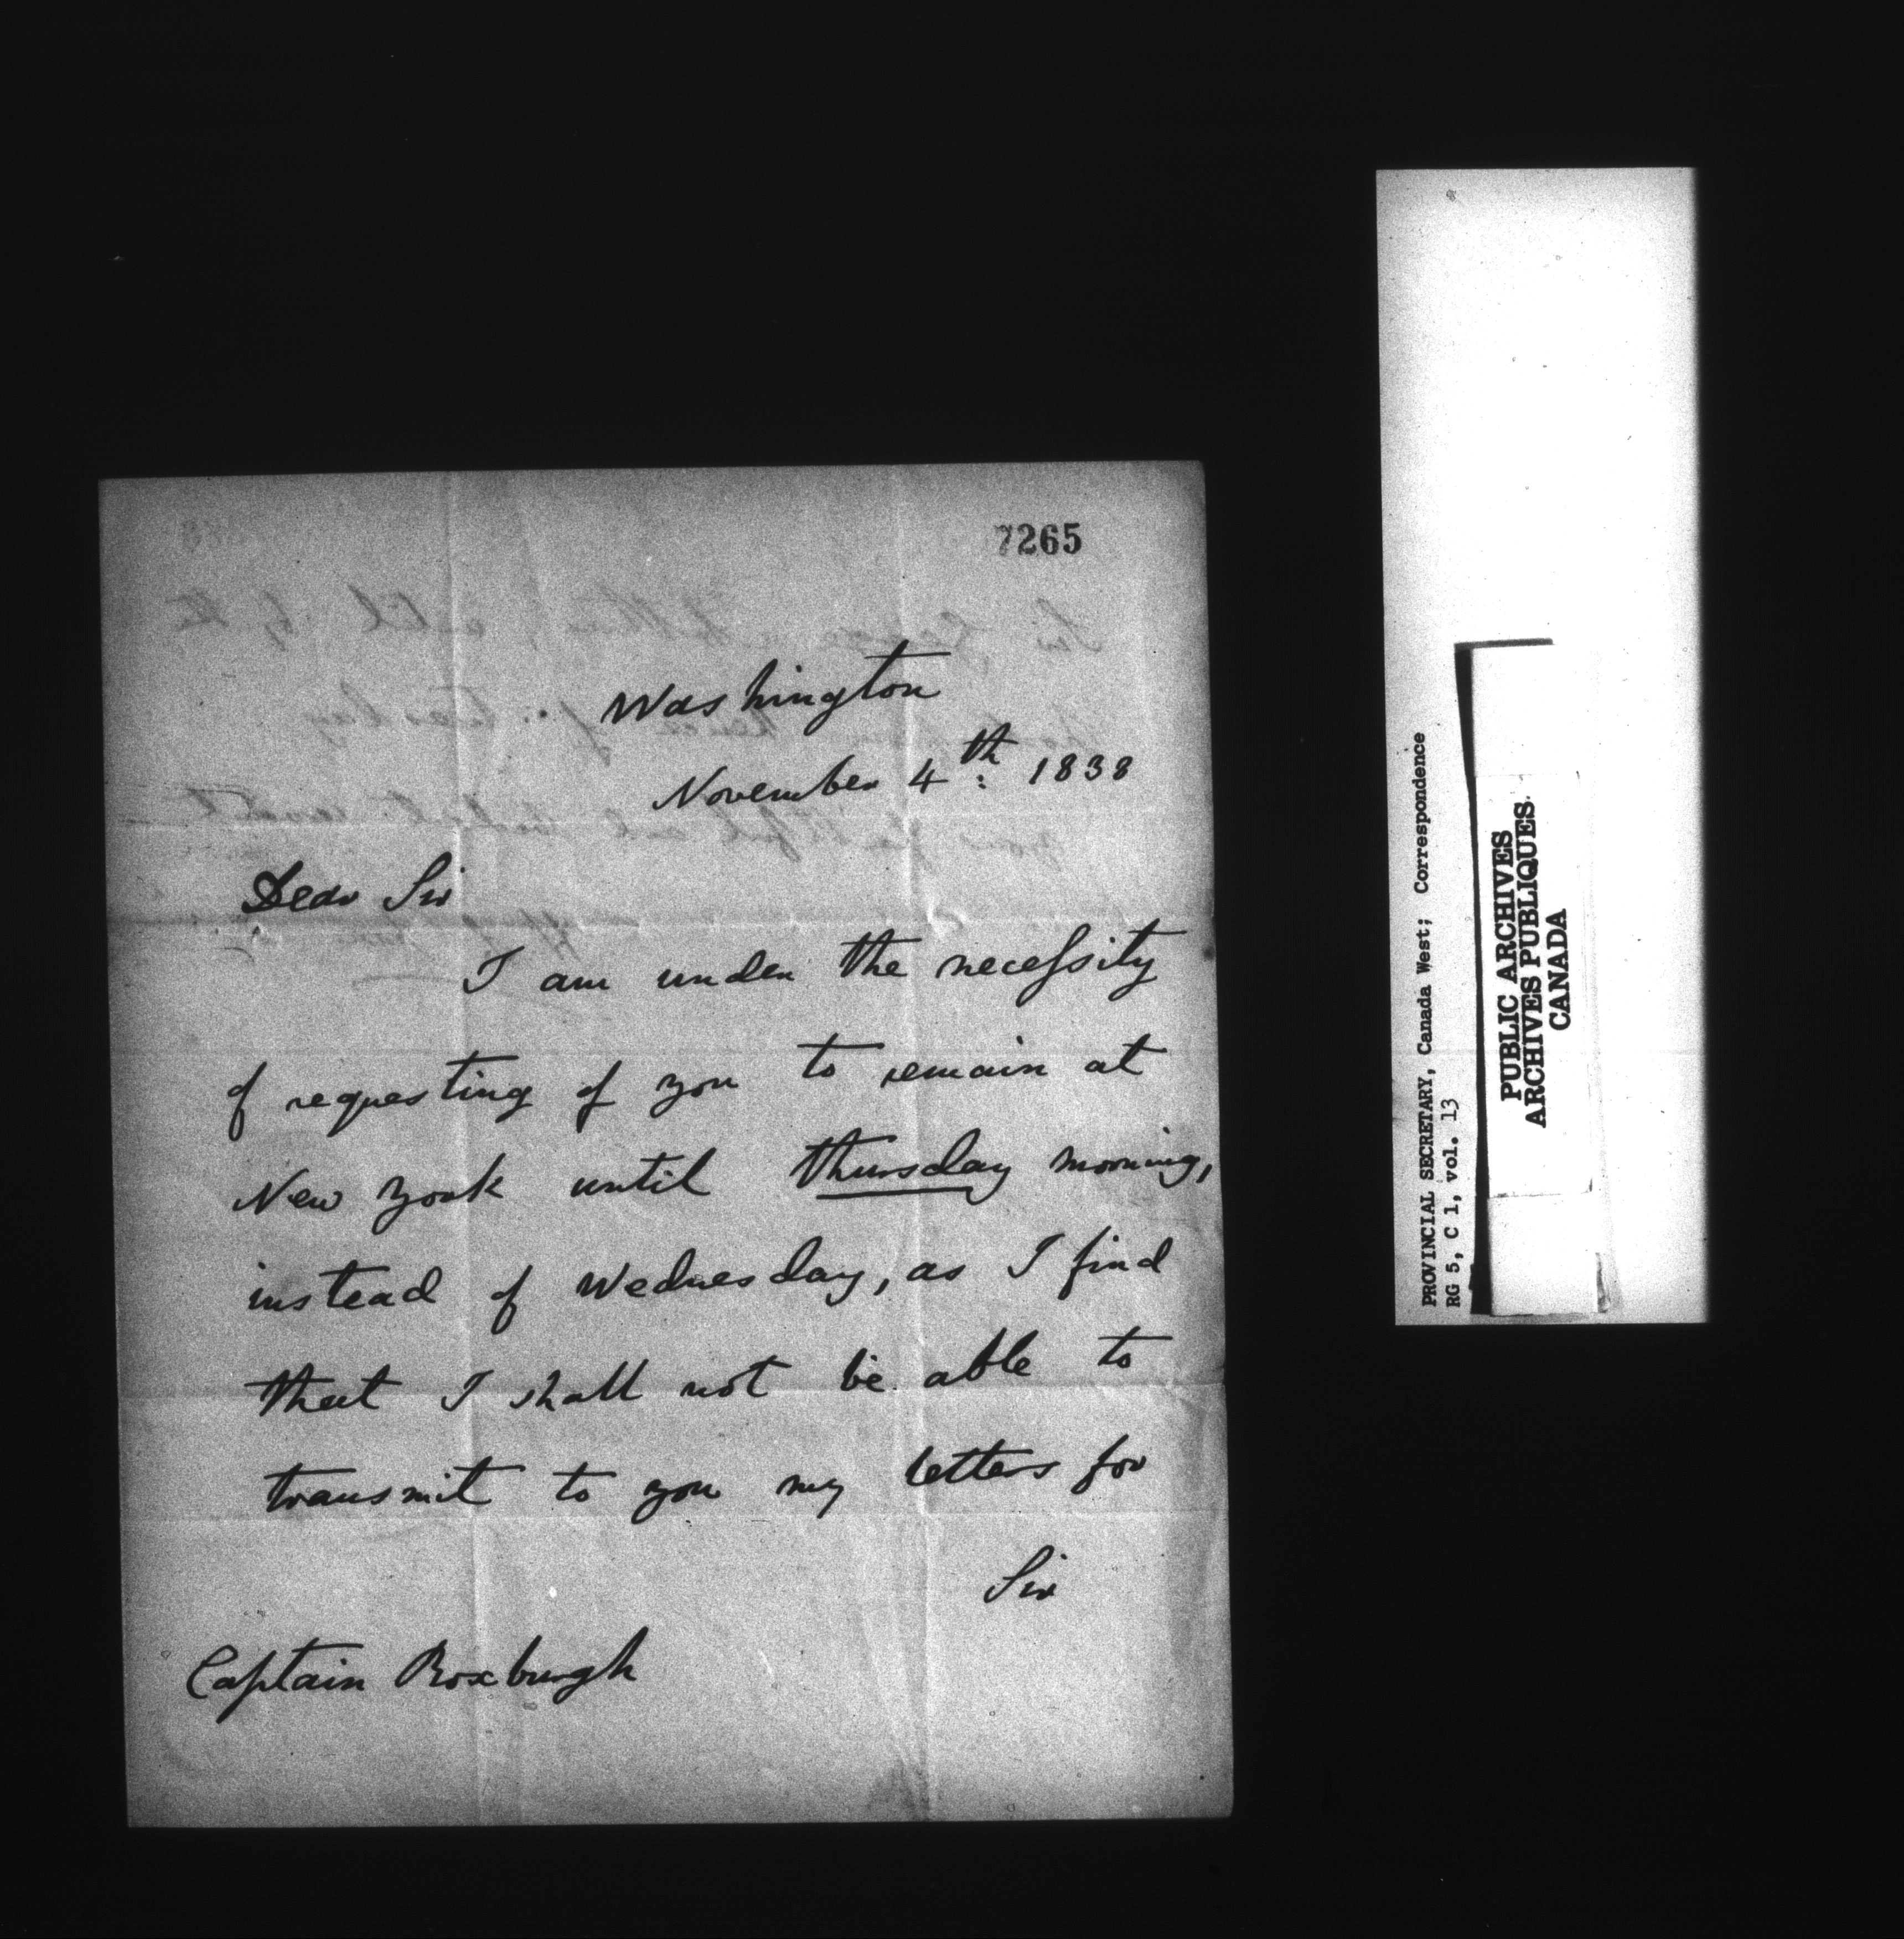 7265
Washington
November 4th: 1838
Dear Sir
I am under the necessity
of requesting of you to remain at
New York until thursday morning,
instead of Wednesday, as I find
that I shall not be able to
transmit to you my letters for
Sir
Captain Roxburgh
PROVINCIAL SECRETARY, Canada West; Correspondence
RG 5, C 1, vol. 13
PUBLIC ARCHIVES
ARCHIVES PUBLIQUES
CANADA